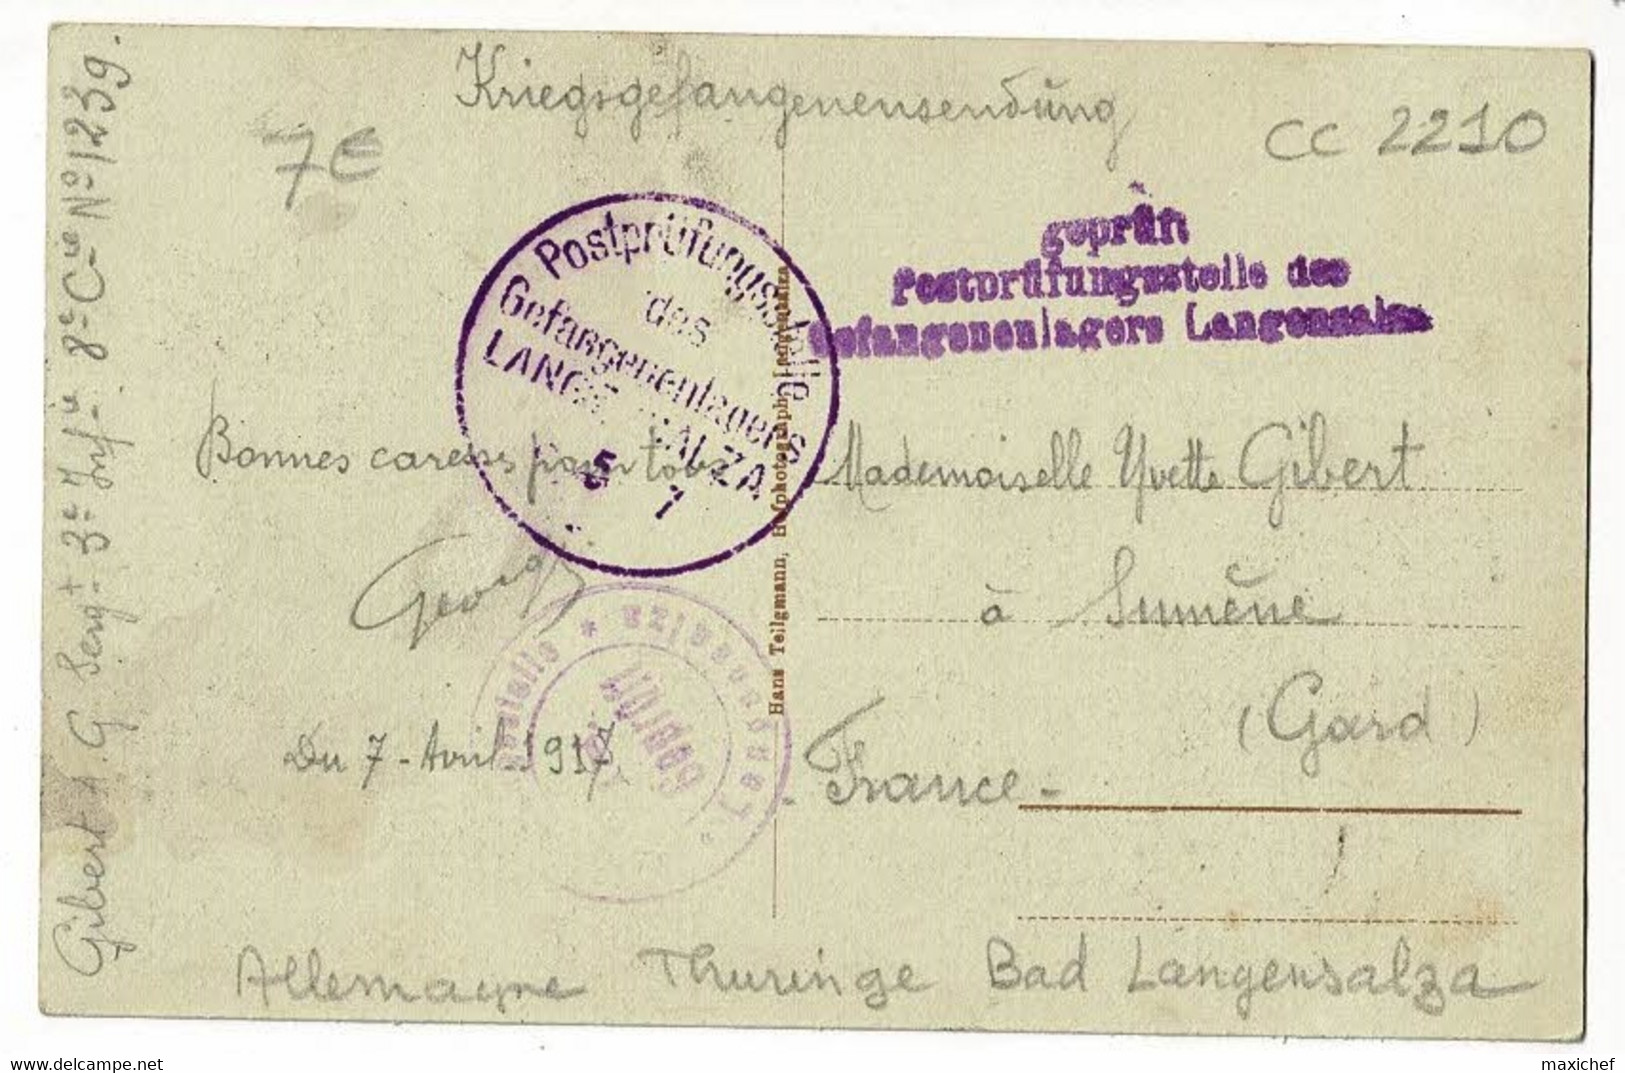 Kriegsgefangenensendung
7€
CC 2210
Postprüfungsstelle
des
Gefangenenlagers
LANGENSALZA
5 1
geprüft
Postprüfungsstelle des
Gefangenenlagers Langensalza
Bonnes caresses pour tous
Georges
Du 7 - Avril 1917
Mademoiselle Yvette Gibert
à Sumène
(Gard)
- France -
Hans Teilgmann, Hofphotograph, Langensalza
Gibert A. G Sergt 3e Infie 8e Cie No 1239.
Allemagne Thuringe Bad Langensalza
delcampe.net
maxichef